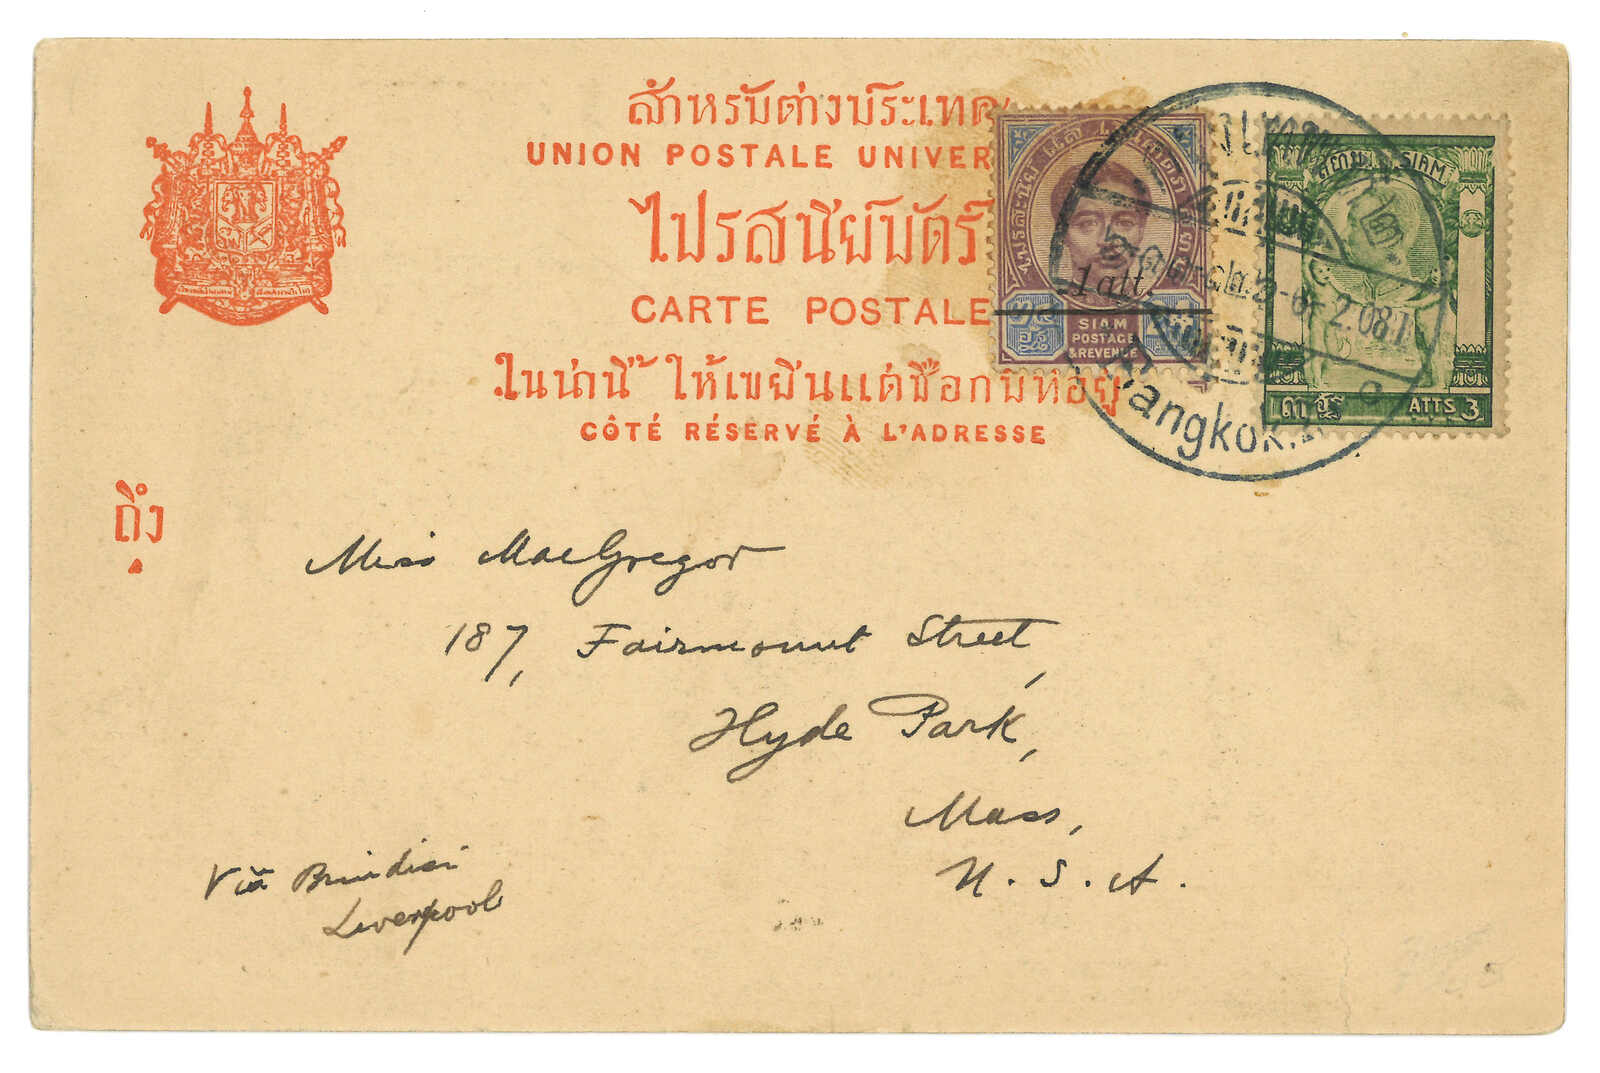 สำหรับต่างประเทศ
UNION POSTALE UNIVER
ไปรสนีย์บัตร์
CARTE POSTALE
ในน่านี้ ให้เขียนแต่ชื่อกับที่อยู่
CÔTÉ RÉSERVÉ À L'ADRESSE
ถึง
1 att
SIAM
POSTAGE
& REVENUE
สยาม SIAM
๓ ATTS 3
2.08.
Bangkok.
Miss MacGregor
187, Fairmount Street,
Hyde Park,
Mass,
U. S. A.
Via Brindisi
Liverpool